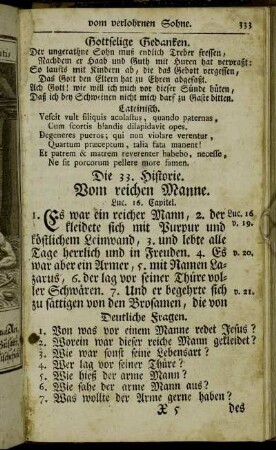 vom verlohrnen Sohne. 333
Gottselige Gedanken.
Der ungerathne Sohn muß endlich Treber fressen,
Nachdem er Haab und Guth mit Huren hat verpraßt:
So laufts mit Kindern ab, die das Gebott vergessen,
Das Gott den Eltern hat zu Ehren abgefaßt.
Ach Gott! wie will ich mich vor dieser Sünde hüten,
Daß ich bey Schweinen nicht mich darf zu Gaste bitten.
Lateinisch.
Vescit vult siliquis acolastus, quando paternas,
Cum scortis blandis dilapidavit opes.
Degeneres pueros; qui non violare verentur,
Quartum præceptum, talia fata manent!
Et patrem & matrem reverenter habebo, necesso,
Ne sit porcorum pellere more famem.
Die 33. Historie.
Vom reichen Manne.
Luc. 16. Capitel.
1. Es war ein reicher Mann, 2. der Luc. 16
kleidete sich mit Purpur und v. 19.
köstlichem Leinwand, 3. und lebte alle
Tage herrlich und in Freuden. 4. Es v. 20.
war aber ein Armer, 5. mit Namen La-
zarus, 6. der lag vor seiner Thüre vol-
ler Schwären. 7. Und er begehrte sich v. 21.
zu sättigen von den Brosamen, die von
Deutliche Fragen.
1. Von was vor einem Manne redet Jesus?
2. Worein war dieser reiche Mann gekleidet?
3. Wie war sonst seine Lebensart?
4. Wer lag vor seiner Thüre?
5. Wie hieß der arme Mann?
6. Wie sahe der arme Mann aus?
7. Was wollte der Arme gerne haben?
X 5 des